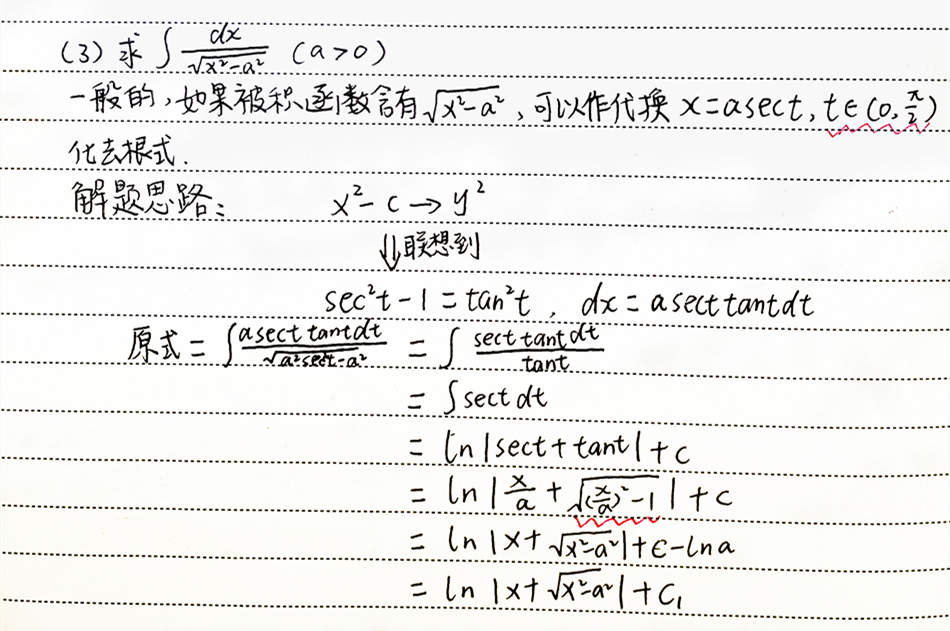 (3) 求 ∫ dx/√(x²-a²) (a>0)
一般的,如果被积函数含有√(x²-a²),可以作代换 x=asect, t∈(0,π/2)
化去根式.
解题思路: x²-c→y²
⇓联想到
sec²t-1=tan²t, dx=asecttantdt
原式=∫asecttantdt/√(a²sec²t-a²) =∫secttantdt/tant
=∫sectdt
=ln|sect+tant|+c
=ln|x/a+√((x/a)²-1)|+c
=ln|x+√(x²-a²)|+c-lna
=ln|x+√(x²-a²)|+C₁